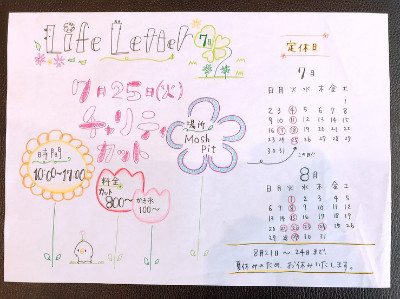 Life Letter 7月
7月25日(火)
チャリティ
カット
時間
10:00~17:00
料金
カット
800~
かき氷
100~
場所
Mosh
Pit
定休日
7月
日 月 火 水 木 金 土
1
2 3 4 5 6 7 8
9 10 11 12 13 14 15
16 17 18 19 20 21 22
23 24 25 26 27 28 29
30 31
この日!!
8月
日 月 火 水 木 金 土
1 2 3 4 5
6 7 8 9 10 11 12
13 14 15 16 17 18 19
20 21 22 23 24 25 26
27 28 29 30 31
8月21日~24日まで、
夏休みのため、お休みいたします。